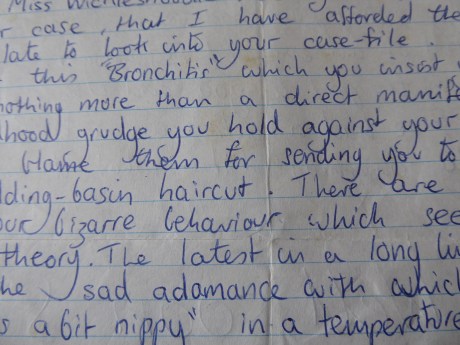 Miss
r case, that I have afforded the
late to look into your case-file.
this "Bronchitis" which you insist
nothing more than a direct manife
lhood grudge you hold against your
blame them for sending you to
lding-basin haircut. There are
our bizarre behaviour which see
theory. The latest in a long li
he sad adamance with which
s a bit nippy" in a temperature